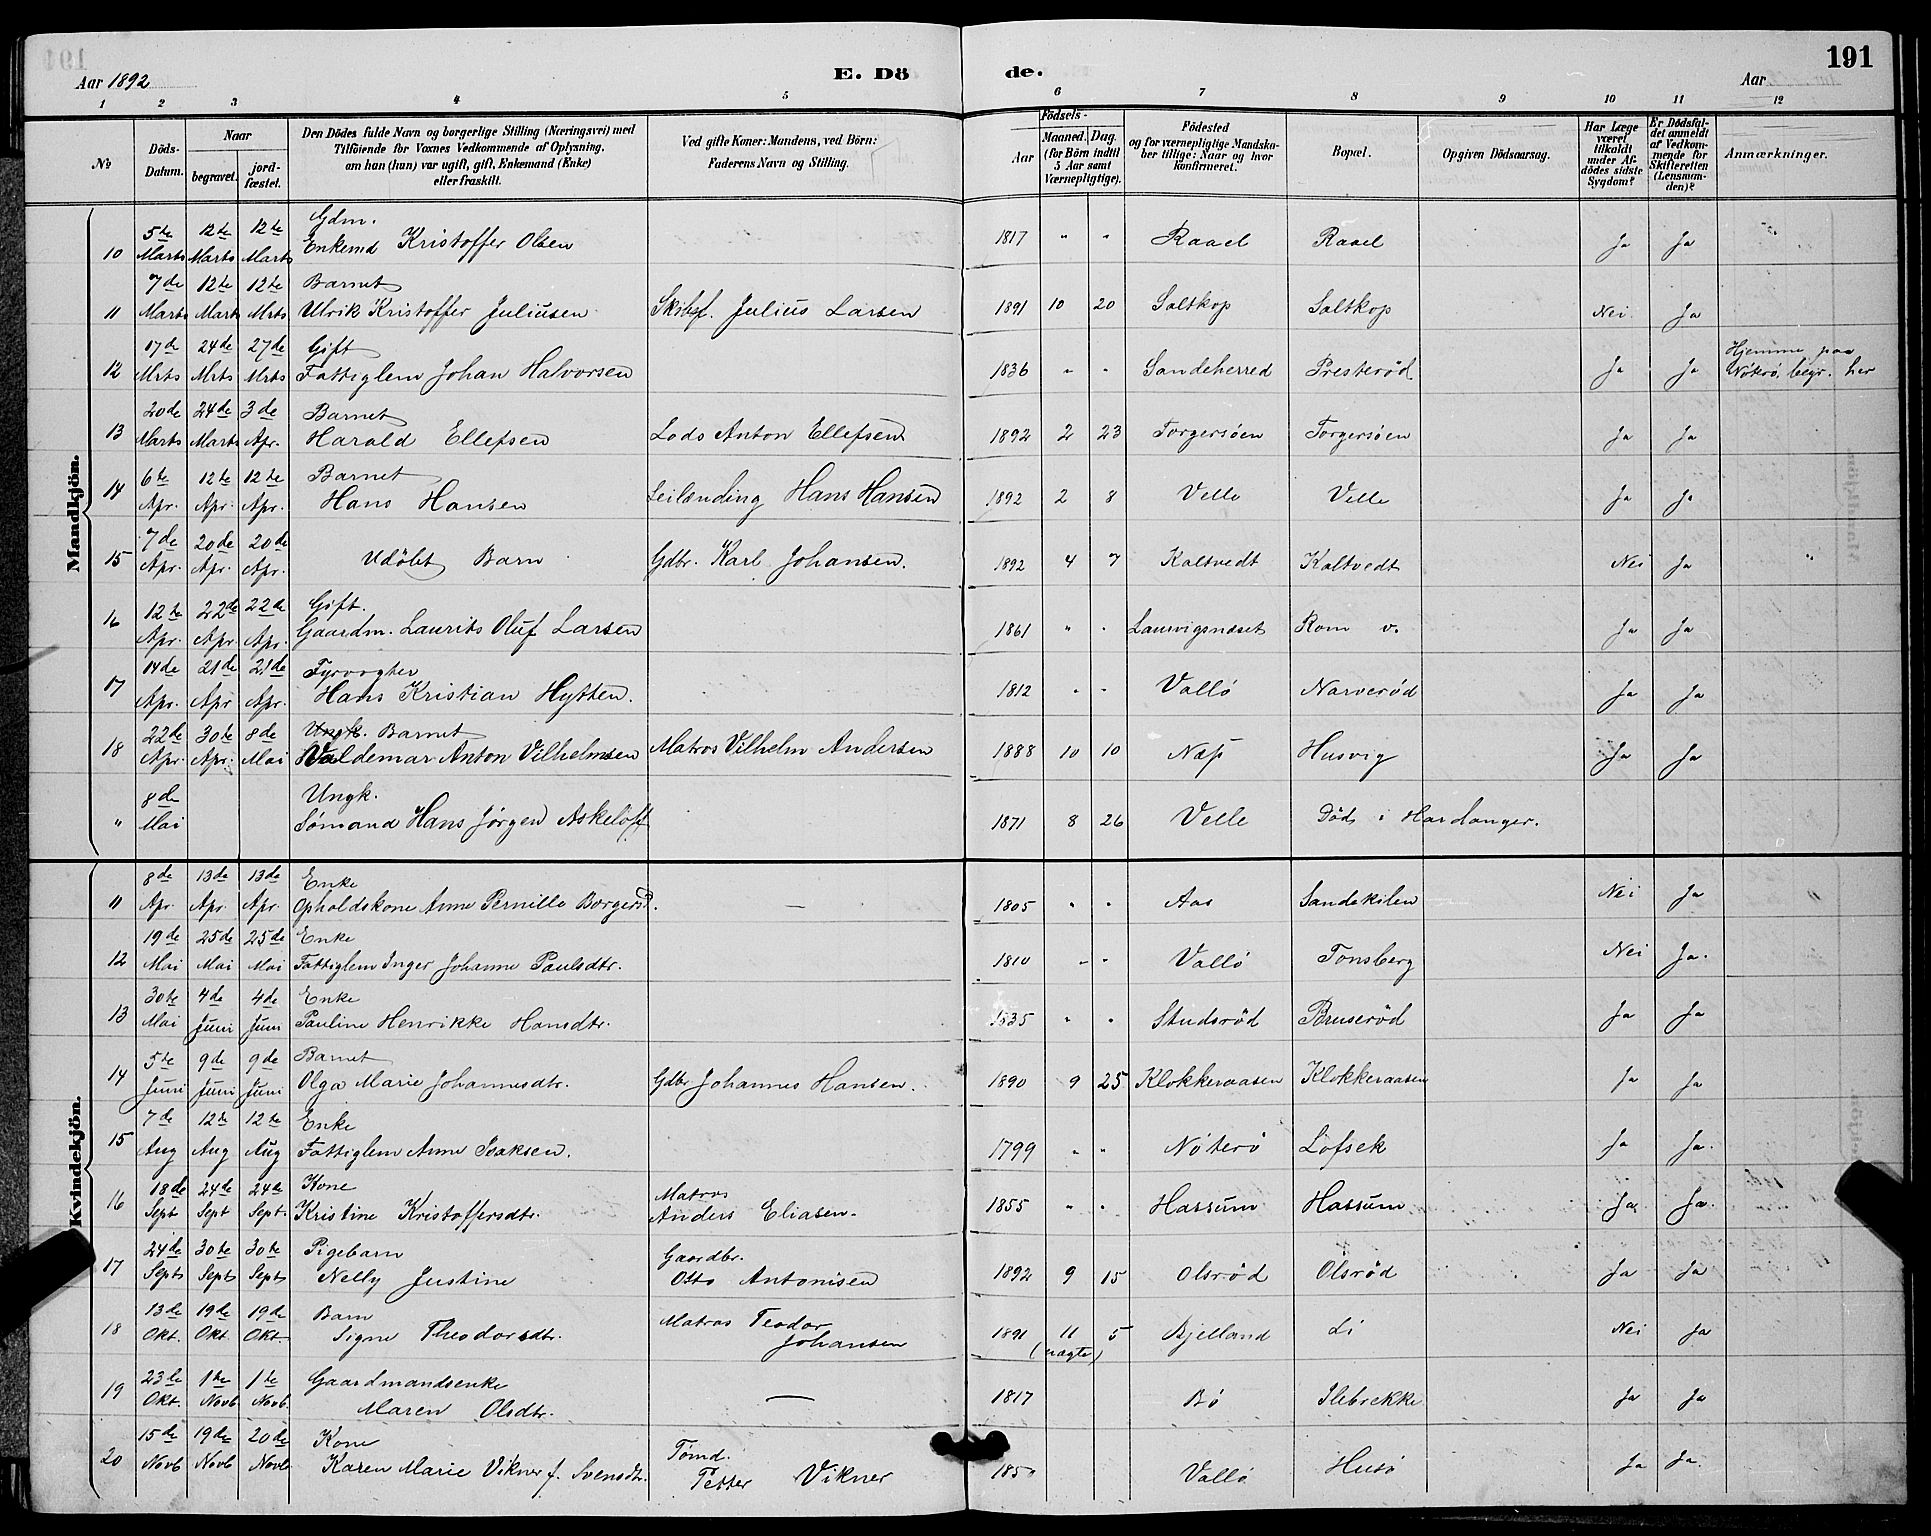 191
Aar 1892
E. Dö
de.
Aar
1 2 3 4 5 6 7 8 9 10 11 12
№
Döds-Datum.
Naar
begravet.
jordfæstet.
Den Dödes fulde Navn og borgerlige Stilling (Næringsvei) med
Tilföiende for Voxnes Vedkommende af Oplysning,
om han (hun) var ugift, gift, Enkemand (Enke)
eller fraskilt.
Ved gifte Koner: Mandens, ved Börn:
Faderens Navn og Stilling.
Födsels-
Aar
Maaned. Dag.
(for Börn indtil
5 Aar samt
Værnepligtige).
Födested
og for værnepligtige Mandska-
ber tillige: Naar og hvor
konfirmeret.
Bopæl.
Opgiven Dödsaarsag.
Har Læge
været
tilkaldt
under Af-
dödes sidste
Sygdom?
Er Dödsfal-
det anmeldt
af Vedkom-
mende for
Skifteretten
(Lensman-
den)?
Anmærkninger.
Mandkjön.
10 5te Marts 12te Marts 12te Marts Gdm. Enkemd Kristoffer Olsen 1817 " " Raael Raael Ja Ja
11 7de Marts 12te Marts 12te Mrts Barnet Ulrik Kristoffer Juliusen Skibsf. Julius Larsen 1891 10 20 Saltkop Saltkop Nei Ja
12 17de Mrts 24de Mrts 27de Mrts Gift Fattiglem Johan Halvorsen 1836 " " Sandeherred Presterød Ja Ja Hjemme paa Nøterø, begr. her
13 20de Marts 24de Marts 3de Apr. Barnet Harald Ellefsen Lods Anton Ellefsen 1892 2 23 Torgersøen Torgersøen Ja Ja
14 6te Apr. 12te Apr. 12te Apr. Barnet Hans Hansen Leilænding Hans Hansen 1892 2 8 Velle Velle Ja Ja
15 7de Apr. 20de Apr. 20de Apr. Udøbt Barn Gdbr. Karl Johansen. 1892 4 7 Kaltvedt Kaltvedt Nei Ja "
16 12te Apr. 22de Apr. 22de Apr. Gift. Gaardm. Laurits Oluf Larsen 1861 " " Laurvigsnæset Rom v. Ja Ja
17 14de Apr. 21de Apr 21de Apr. Fyrvogter Hans Kristian Hytten. 1812 " " Vallö Narverød Ja Ja
18 22de Apr. 30te Apr. 8de Mai Ungk. Barnet Valdemar Anton Vilhelmsen Matros Vilhelm Andersen 1888 10 10 Næs Husvig Ja Ja
" 8de Mai Ungk. Sømand Hans Jørgen Askeloff 1871 8 26 Velle Död i Hardanger.
Kvindekjön.
11 8de Apr 13de Apr. 13de Apr. Enke Opholdskone Anne Pernille Borgersd. — 1805 " " Aas Sandekilen Nei Ja
12 19de Mai 25de Mai 25de Mai Enke Fattiglem Inger Johanne Paulsdtr. 1810 " " Vallö Tønsberg Nei Ja.
13 30te Mai 4de Juni 4de Juni Enke Pauline Henrikke Hansdtr. 1835 " " Studsrød Bruserød Ja Ja
14 5te Juni 9de Juni 9de Juni Barnet Olga Marie Johannesdtr. Gdbr Johannes Hansen. 1890 9 25 Klokkeraasen Klokkeraasen Ja Ja
15 7de Aug 12te Aug 12te Aug Enke Fattiglem Anne Isaksen. 1799 " " Nøterø Lofsek Ja Ja.
16 18de Sept 24de Sept 24de Sept. Kone Kristine Kristoffersdtr. Matros Anders Eliasen. 1855 " " Hassum Hassum Ja Ja.
17 24de Septs 30te Septs 30te Septs Pigebarn Nelly Justine Gaardbr. Otto Antonisen 1892 9 15 Olsrød Olsrød Ja Ja
18 13de Okt. 19de Okt. 19de Okt. Barn Signe Theodorsdtr. Matros Teodor Johansen 1891 11 5 (uægte) Bjelland Li Nei Ja
19 23de Okt. 1te Novb 1te Novb. Gaardmandsenke Maren Olsdtr. — 1817 Bø Ilebrekke Ja Ja
20 15de Novb 19de Novb 20de Novb Kone Karen Marie Vikner f. Svensdtr. Tømd. Petter Vikner Vallö Husø Ja Ja.